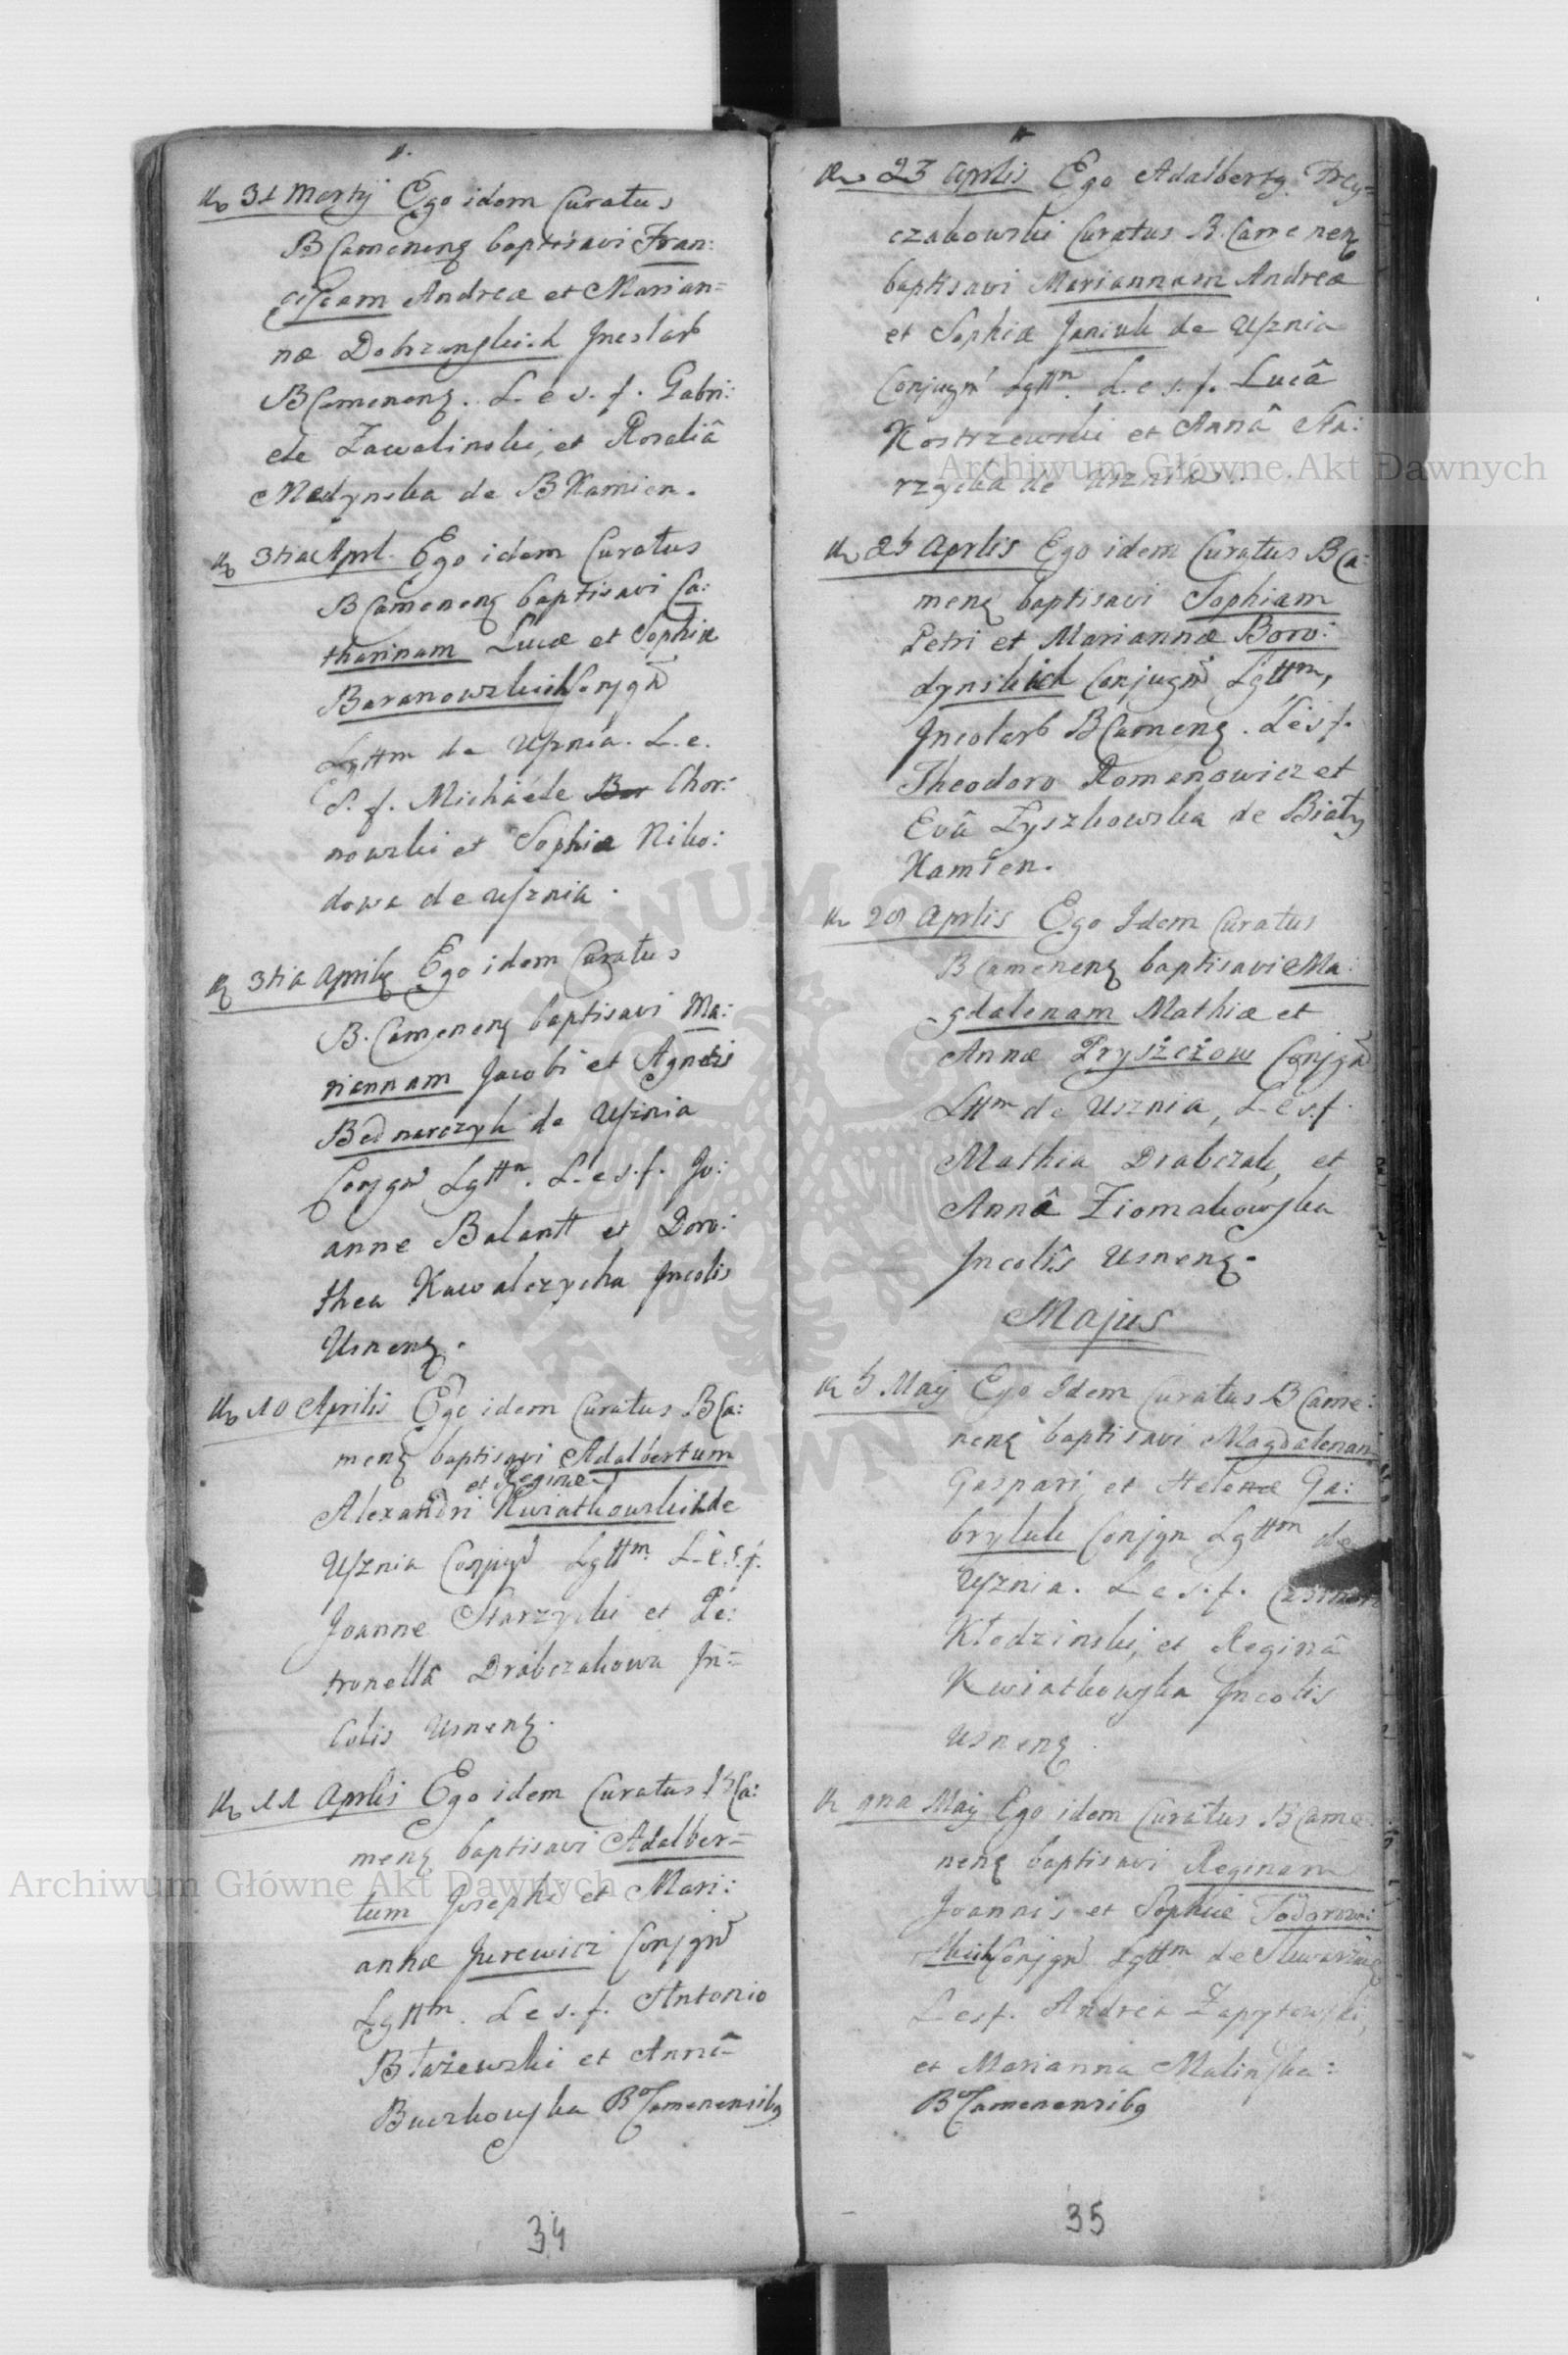 31 Martij Ego idem Curatus
B Camenens baptisavi Fran:
ciscam Andreæ et Marian=
næ Dobrzanskich Incolar
B Camenens. L. e s. f. Gabri:
ele Zawalinski, et Rosaliâ
Madynska de B Kamien.
3tia Aprl. Ego idem Curatus
B Camenens baptisavi Ca:
tharinam Lucæ et Sophiæ
Baranowskich Conjgũ
Lgttm de Usznia. L. e.
S. f. Michaele Bar Chor:
nowski et Sophia Niko:
dowa de Usznia.
3tia Aprilis Ego idem Curatus
B. Camenens baptisavi Ma:
riannam Jacobi et Agnetis
Bednarczyk de Usznia
Conjgũ Lgttm. L. e s. f. Jo:
anne Balantt et Doro:
thea Kawalczycha Incolis
Usnens.
10 Aprilis Ego idem Curatus B Ca:
mens baptisavi Adalbertum
et Reginæ
Alexandri Kwiatkowskich de
Usznia Conjugũ Lgttm. L. e S. f.
Joanne Starzycki et Pe:
tronellâ Drabczakowa In=
Colis Usnens.
11 Aprlis Ego idem Curatus B Ca:
mens baptisavi Adalber=
tum Josephi et Mari:
annæ Jurewicz Conjgũ
Lgttm. L e s. f. Antonio
Błażewski et Annâ
Buczkowska B Camenensibg
34
23 Aprlis Ego Adalbertg Trey=
czakowski Curatus B. Camenens
baptisavi Mariannam Andreæ
et Sophiæ Janiuk de Usznia
Conjugũ Lgttm. L. e s. f. Lucâ
Kostrzewski et Annâ Sta:
rzycka de Usznia.
25 Aprlis Ego idem Curatus B Ca:
mens baptisavi Sophiam
Petri et Mariannæ Boro:
dynskich Conjugũ Lgttm,
Incolarb B Camens. L e s f.
Theodoro Romanowicz et
Evâ Łyszkowska de Biały
Kamien.
Aprlis Ego Idem Curatus
B Camenens baptisavi Ma:
gdalenam Mathiæ et
Annæ Pryszczow Conjgũ
Lttm de Usznia, L e s. f.
Mathia Drabczak, et
Annâ Ziomakowska
Incolis Usnens.
Majus
5 Maij Ego Idem Curatus B Came:
nens baptisavi Magdalenam
Gaspari, et Helenæ Ga:
bryluk Conjgũ Lgttm de
Usznia. L e s. f.
Kłodzinski, et Reginâ
Kwiatkowska Incolis
Usnens.
9na Maij Ego idem Curatus B Came
nens baptisavi Reginam
Joannis et Sophiæ Todorow:
skich Conjgũ Lgttm de
L e s f. Andrea Zapytowski,
et Marianna Malinska:
B Camenensibg
35
Archiwum Główne Akt Dawnych
Archiwum Główne Akt Dawnych